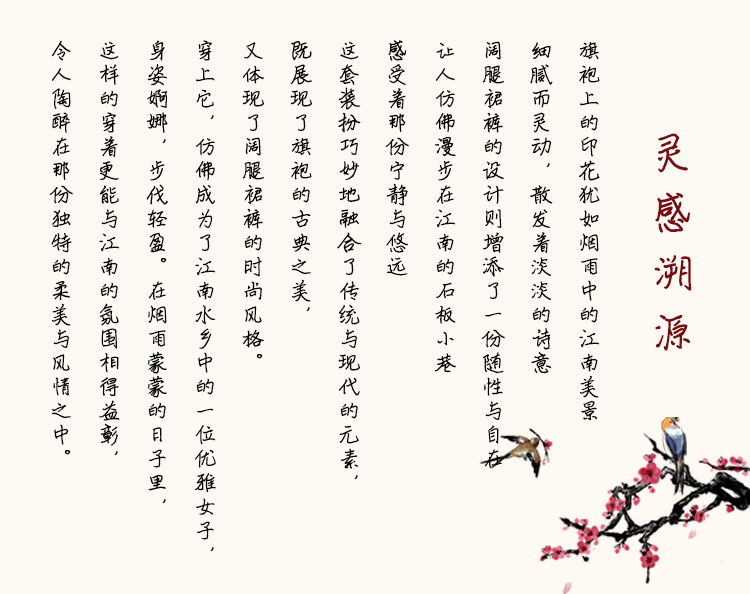 灵感溯源
旗袍上的印花犹如烟雨中的江南美景
细腻而灵动，散发着淡淡的诗意
阔腿裙裤的设计则增添了一份随性与自在
让人仿佛漫步在江南的石板小巷
感受着那份宁静与悠远
这套装扮巧妙地融合了传统与现代的元素，
既展现了旗袍的古典之美，
又体现了阔腿裙裤的时尚风格。
穿上它，仿佛成为了江南水乡中的一位优雅女子，
身姿婀娜，步伐轻盈。在烟雨蒙蒙的日子里，
这样的穿着更能与江南的氛围相得益彰，
令人陶醉在那份独特的柔美与风情之中。